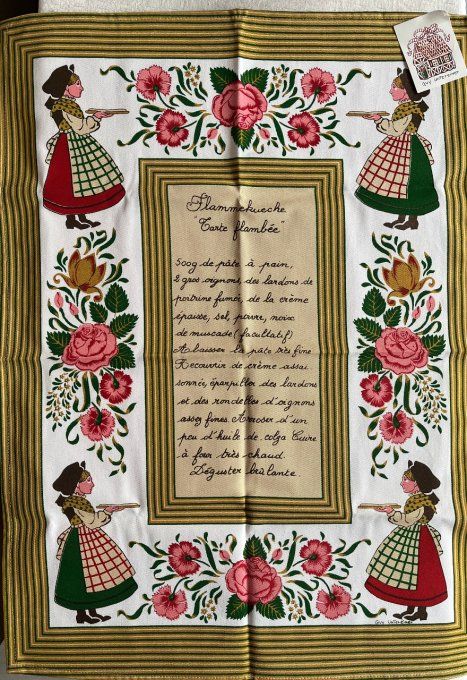 Flammekueche
Tarte flambée"
500g de pâte à pain,
2 gros oignons, des lardons de
poitrine fumés, de la crème
épaisse, sel, poivre, noix
de muscade (facultatif)
Abaisser la pâte très fine
Recouvrir de crème assai
sonnée, éparpiller des lardons
et des rondelles d'oignons
assez fines Arroser d'un
peu d'huile de colza Cuire
à four très chaud.
Déguster brûlante